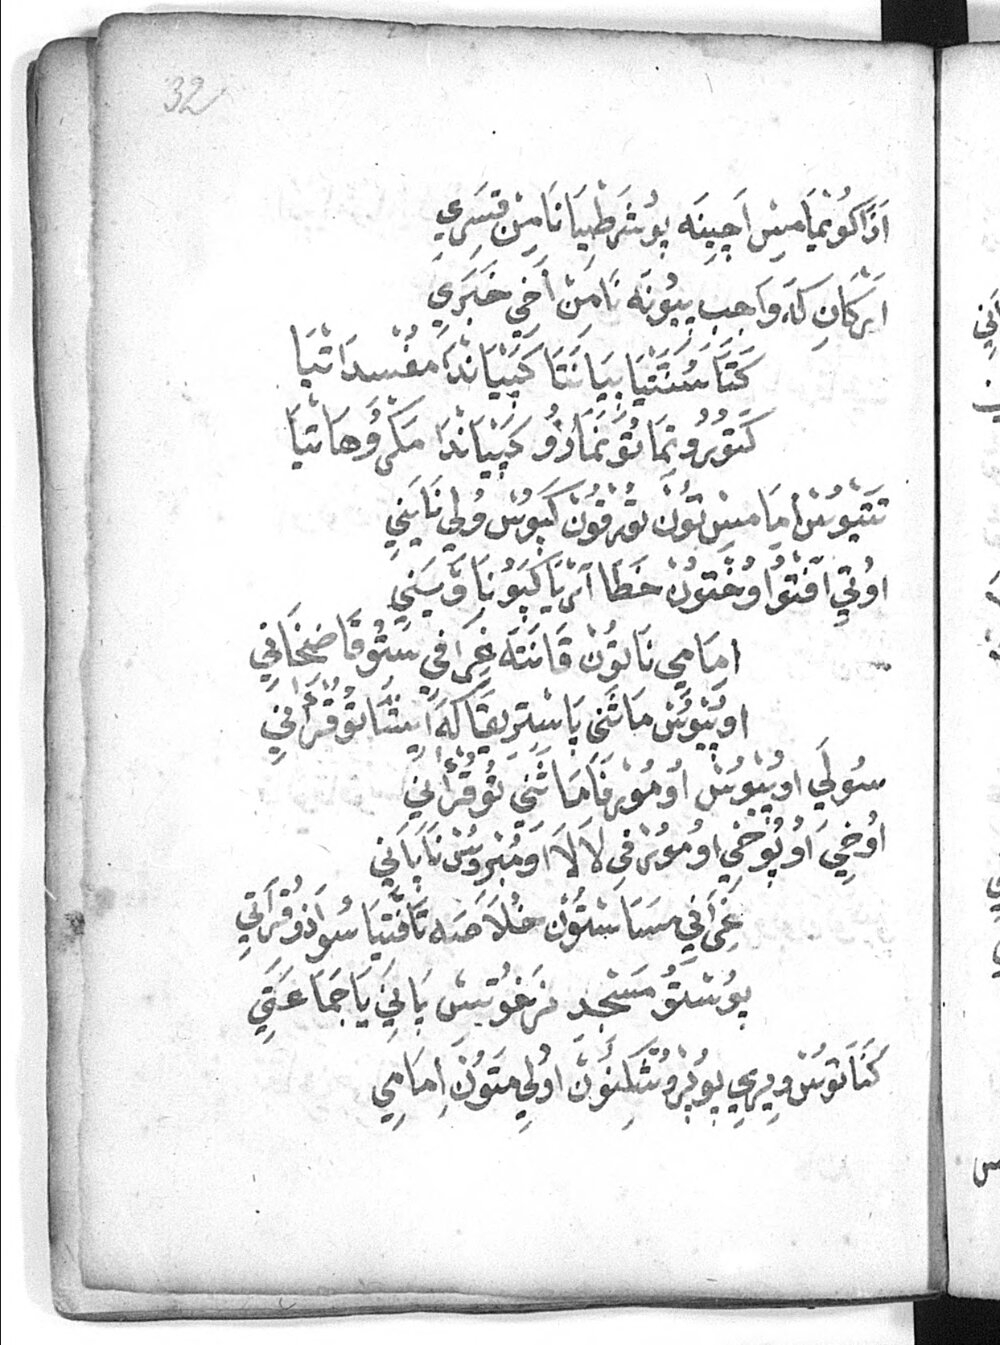 32
اَذَاكُونْيَامِسْ اَجِينَه پُوشَرْطِيَانَامِنْ قَسَرِي
اَرْكَانِ كَه وَاجِبِ پِيُونَه نَامِنْ اَخِي خَبَرِي
كَتَا سُنَتْيَا پِيَانَتَا كَپْيَانْدَا مُفْسِدَاتْيَا
كَتُورُو تِمَاتُو نَمَازُو كَپْيَانْدَا مَكْرُوهَاتْيَا
تَتْيُوسْ اِمَامِسْ تُونْ تُورْقُونْ كَپُوسْ وُلِي نَايَنِي
اُوتِي اَفْتُو اُوخْتُونْ خَطَا اَرْيَا كَپُونَا وَيَنِي
اِمَامِي نَاتُونْ قَانَتَه غِرَافِي سَتُو قَاضِخَانِي
اُوپْيُوسْ مَاثَنِي پَاسْتَرِيقَا كَه اِيشَاتُو قُرْاَنِي
سُولَي اُوپْيُوسْ اُومُوْرفَا مَاثَنِي تُو قُرْاَنِي
اُوخِي اُوپُوخِي اُومُوْرفِي لَالَا اُومْبْرُوسْ نَاپَانِي
غِرَافِي مَسَاسْتُونْ خُلَاصَه تَافْتِيَا سُوَاذُو قُرَاتِي
پُوسْتُو مَسْجِدِ نَرْغُوتِسْ پَانِي يَا جَمَاعَتِي
كَنَاتُوسْ وِيرِي پُوپْرُوشْكِنُونْ اُولِي مَتُونْ اِمَامِي